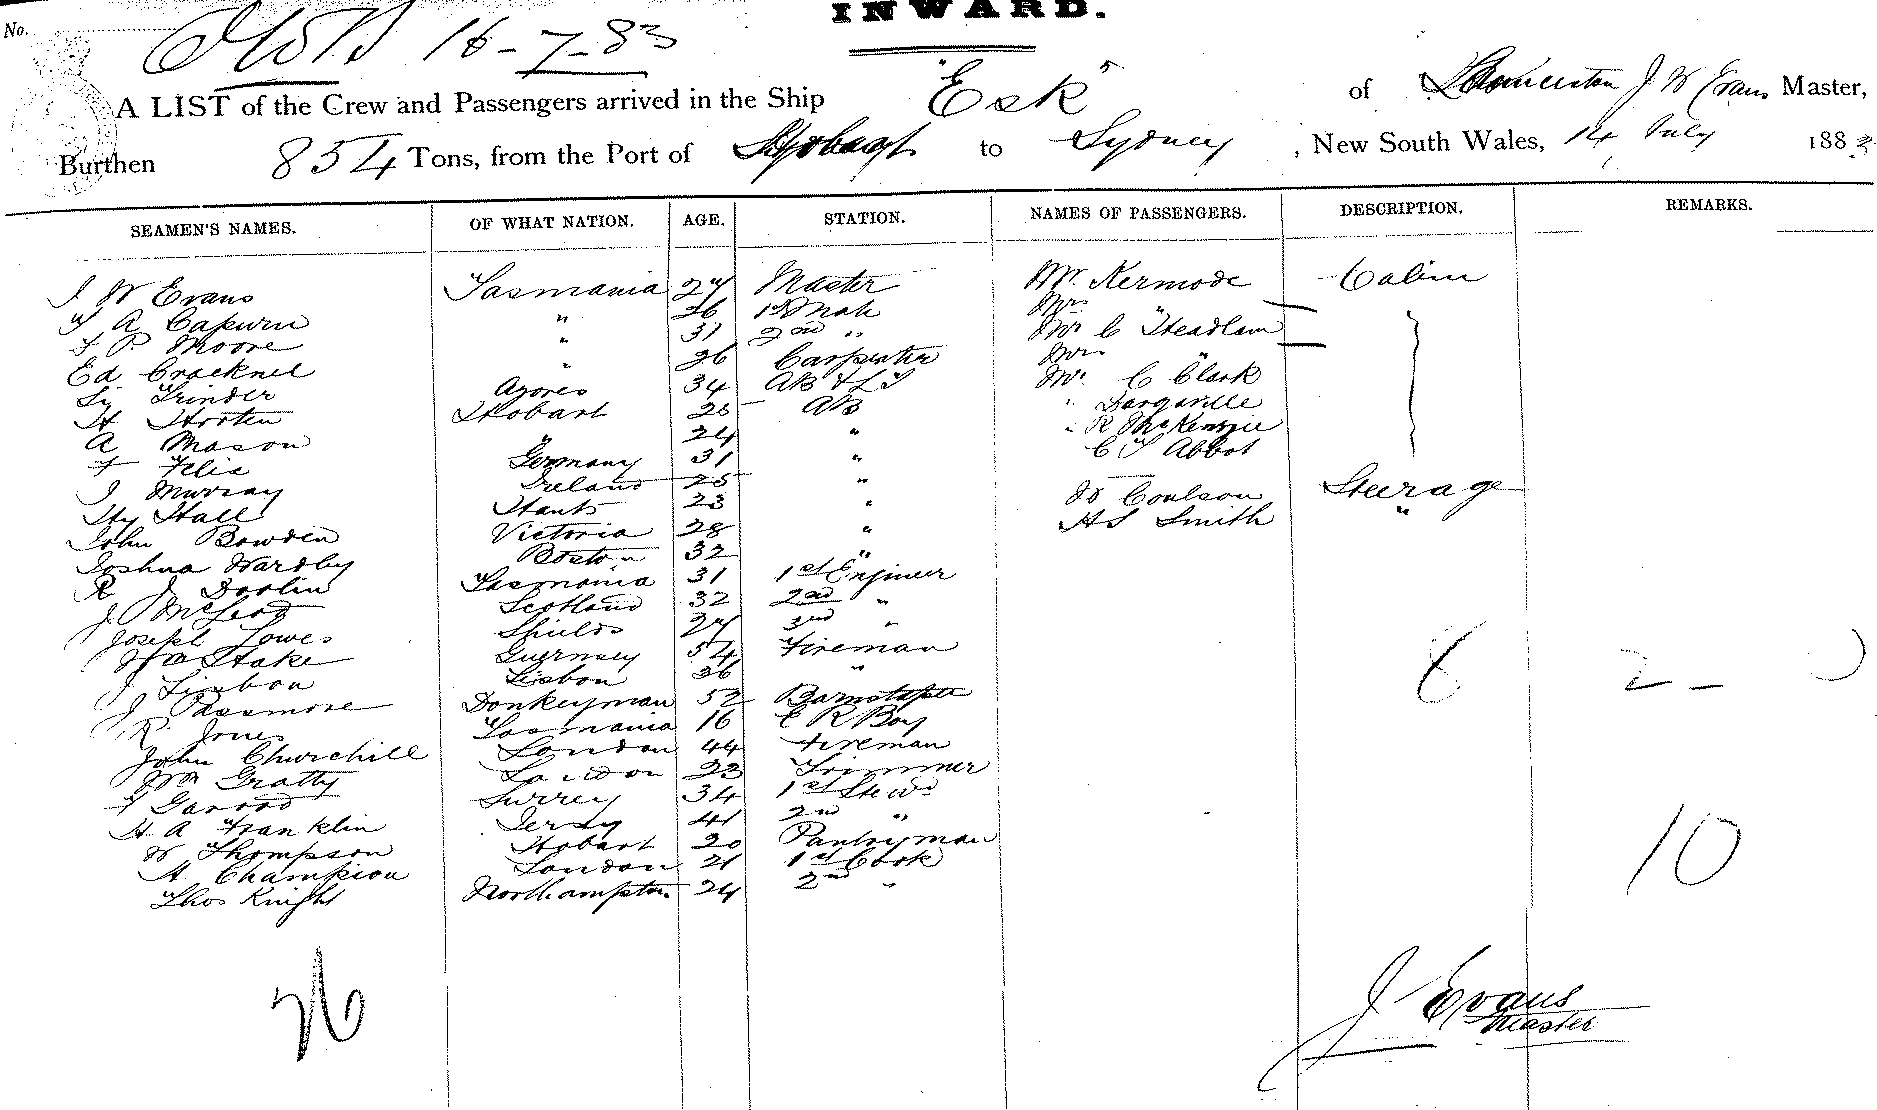 INWARD.
No.
16-7-83
A LIST of the Crew and Passengers arrived in the Ship "Esk" of Launceston J W Evans Master,
Burthen 854 Tons, from the Port of Hobart to Sydney, New South Wales, 14 July 1883
SEAMEN'S NAMES. OF WHAT NATION. AGE. STATION. NAMES OF PASSENGERS. DESCRIPTION. REMARKS.
J W Evans Tasmania 27 Master Mr. Kermode Cabin
A Capurn " 26 1st Mate Mrs "
P Moore " 31 2nd " Mr C Headlam
Ed Cracknel " 26 Carpenter Mrs "
Trinder Azores 34 AB & LT Mr C Clark
H Hooten Hobart 25 AB " Dargaville
A Mason 24 " " R McKenzie
F Felix Germany 31 " C T Abbot
J Murray Ireland 25 "
Hy Hall Hants 23 " W Coulson Steerage
John Bowden Victoria 28 " H S Smith "
Joshua Wardby Boston 32 "
R J Doolin Tasmania 31 1st Engineer
J McLeod Scotland 32 2nd "
Joseph Lowes Shields 27 3rd "
Wm Stake Guernsey 54 Fireman
J Lisbon Lisbon 36 "
J Passmore Donkeyman 52 Barnstaple
R Jones Tasmania 16 E R Boy
John Churchill London 44 Fireman
Wm Gratty London 23 Trimmer
F Garrod Surrey 34 1st Stewd
H A Franklin Jersey 41 2nd "
W Thompson Hobart 20 Pantryman
A Champion London 21 1st Cook
Thos Knight Northampton 24 2nd "
8 2 -
10
26
J Evans
Master